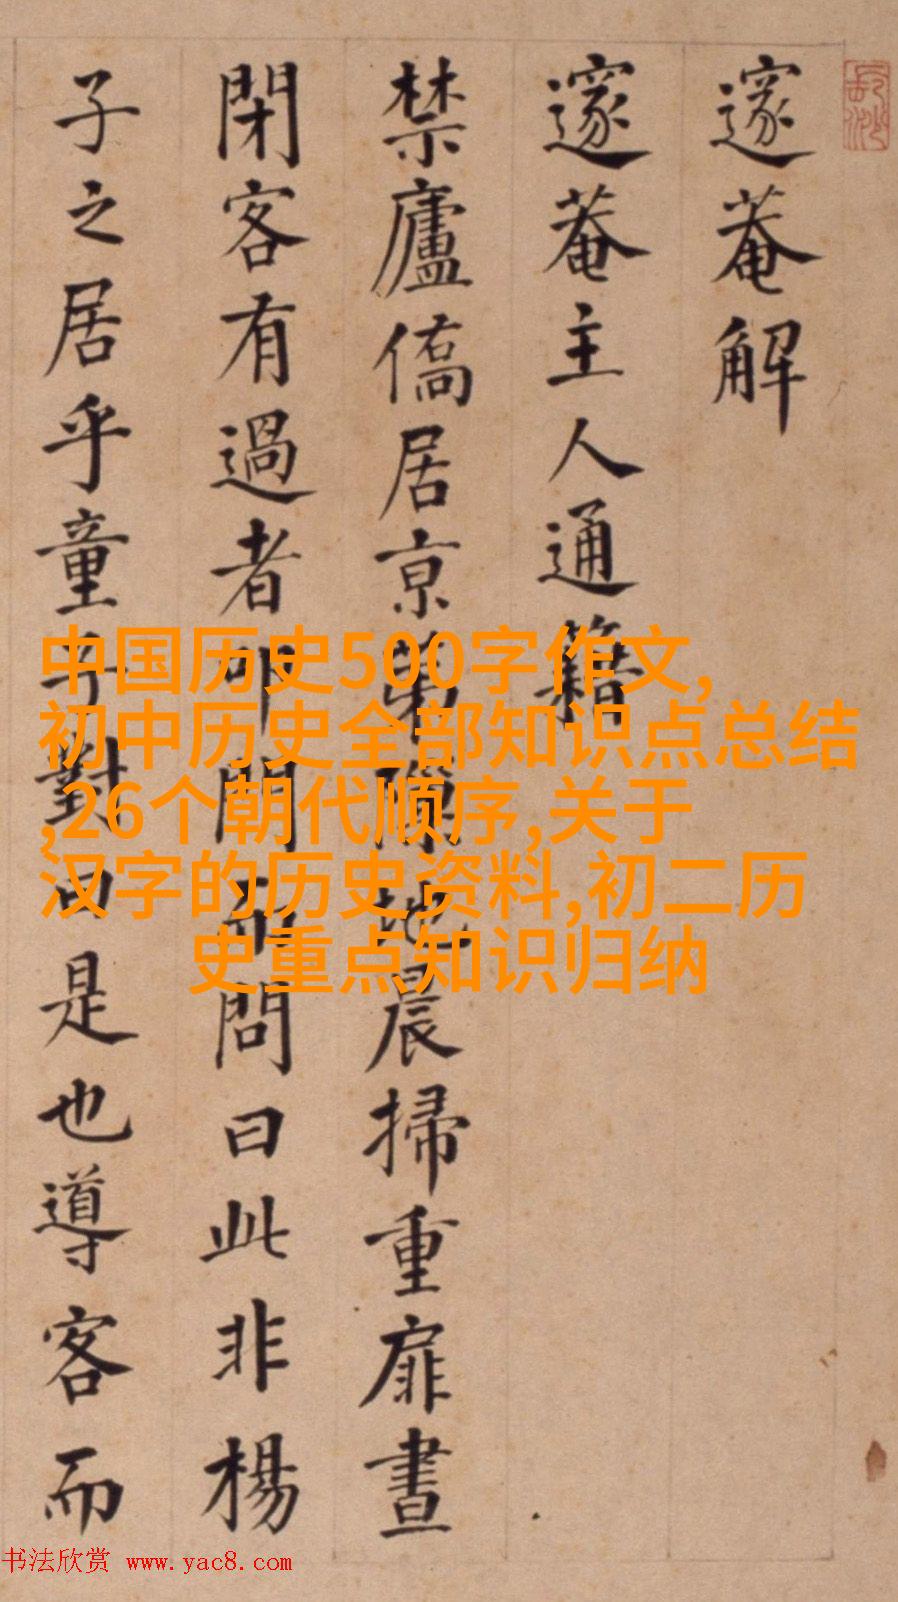 邃菴解
邃菴主人通籍
禁廬僑居亰隙地晨掃重扉晝
閉客有過者叩門而問曰此非楊
子之居乎童子對曰是也導客而
中国历史500字作文,
初中历史全部知识点总结
,26个朝代顺序,关于
汉字的历史资料,初二历
史重点知识归纳
书法欣赏 www.yac8.com